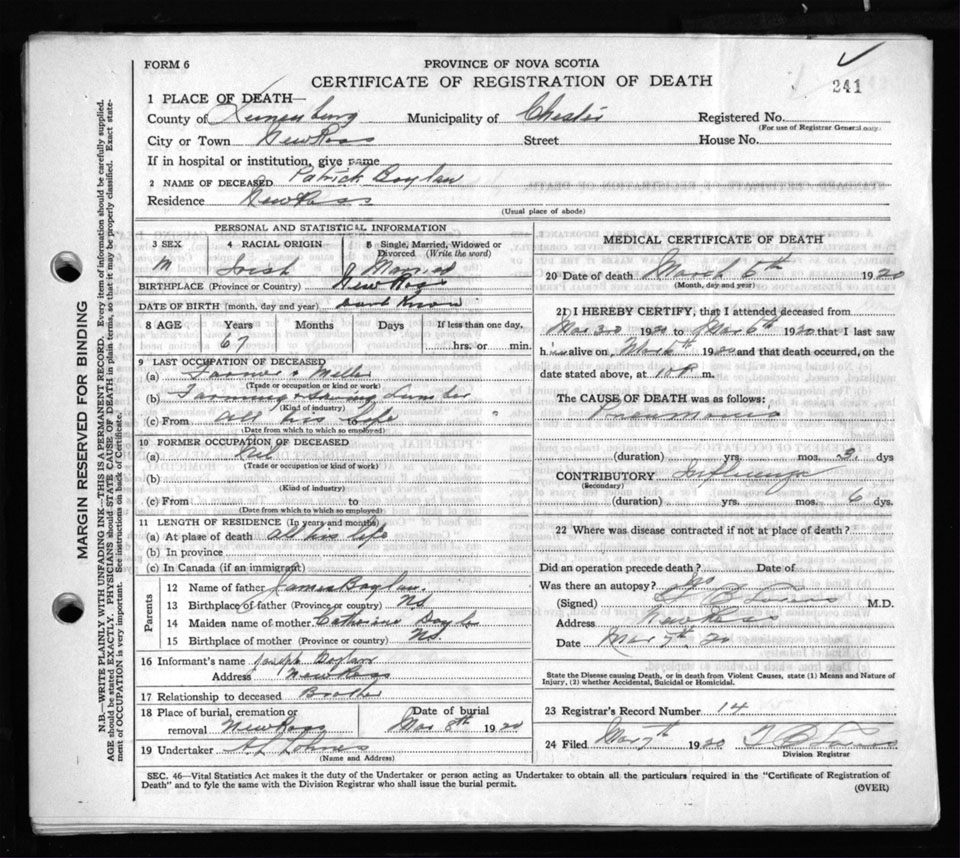 FORM 6
PROVINCE OF NOVA SCOTIA
CERTIFICATE OF REGISTRATION OF DEATH
241
1 PLACE OF DEATH—
County of Lunenburg Municipality of Chester Registered No.
(For use of Registrar General only.)
City or Town New Ross Street House No.
If in hospital or institution, give name
2 NAME OF DECEASED Patrick Boylan
Residence New Ross
(Usual place of abode)
PERSONAL AND STATISTICAL INFORMATION
3 SEX 4 RACIAL ORIGIN 5 Single, Married, Widowed or Divorced (Write the word)
M Irish Married
BIRTHPLACE (Province or Country) New Ross
DATE OF BIRTH (month, day and year) Dont Know
8 AGE Years Months Days If less than one day,
67 hrs. or min.
9 LAST OCCUPATION OF DECEASED
(a) Farmer & Miller
(Trade or occupation or kind or work)
(b) Farming & Sawing Lumber
(Kind of industry)
(c) From all his life
(Date from which to which so employed)
10 FORMER OCCUPATION OF DECEASED
(a) Nil
(Trade or occupation or kind of work)
(b)
(Kind of industry)
(c) From to
(Date from which to which so employed)
11 LENGTH OF RESIDENCE (In years and months)
(a) At place of death all his life
(b) In province
(c) In Canada (if an immigrant)
Parents
12 Name of father James Boylan
13 Birthplace of father (Province or country) NS
14 Maiden name of mother Catherine Boyle
15 Birthplace of mother (Province or country) NS
16 Informant's name Joseph Boylan
Address New Ross
17 Relationship to deceased Brother
18 Place of burial, cremation or removal New Ross Date of burial Mar 8th 1920
19 Undertaker
(Name and Address)
MEDICAL CERTIFICATE OF DEATH
20 Date of death March 6th 1920
(Month, day and year)
21 I HEREBY CERTIFY, that I attended deceased from
Mar 3rd 1920 to Mar 6th 1920 that I last saw
him alive on, Mar 6th 1920 and that death occurred, on the
date stated above, at 10 P m.
The CAUSE OF DEATH was as follows:
Pneumonia
(duration) yrs. mos. 3 dys
CONTRIBUTORY Influenza
(Secondary)
(duration) yrs. mos. 6 dys.
22 Where was disease contracted if not at place of death?
Did an operation precede death? Date of
Was there an autopsy? No
(Signed) M.D.
Address New Ross
Date Mar 7th, 20
State the Disease causing Death, or in death from Violent Causes, state (1) Means and Nature of
Injury, (2) whether Accidental, Suicidal or Homicidal.
23 Registrar's Record Number 14
24 Filed Mar 7th 1920
Division Registrar
SEC. 46—Vital Statistics Act makes it the duty of the Undertaker or person acting as Undertaker to obtain all the particulars required in the "Certificate of Registration of
Death" and to fyle the same with the Division Registrar who shall issue the burial permit.
(OVER)
MARGIN RESERVED FOR BINDING
N.B.—WRITE PLAINLY WITH UNFADING INK—THIS IS A PERMANENT RECORD. Every item of information should be carefully supplied.
AGE should be stated EXACTLY. PHYSICIANS should STATE CAUSE OF DEATH in plain terms, so that it may be properly classified. Exact state-
ment of OCCUPATION is very important. See instructions on back of Certificate.